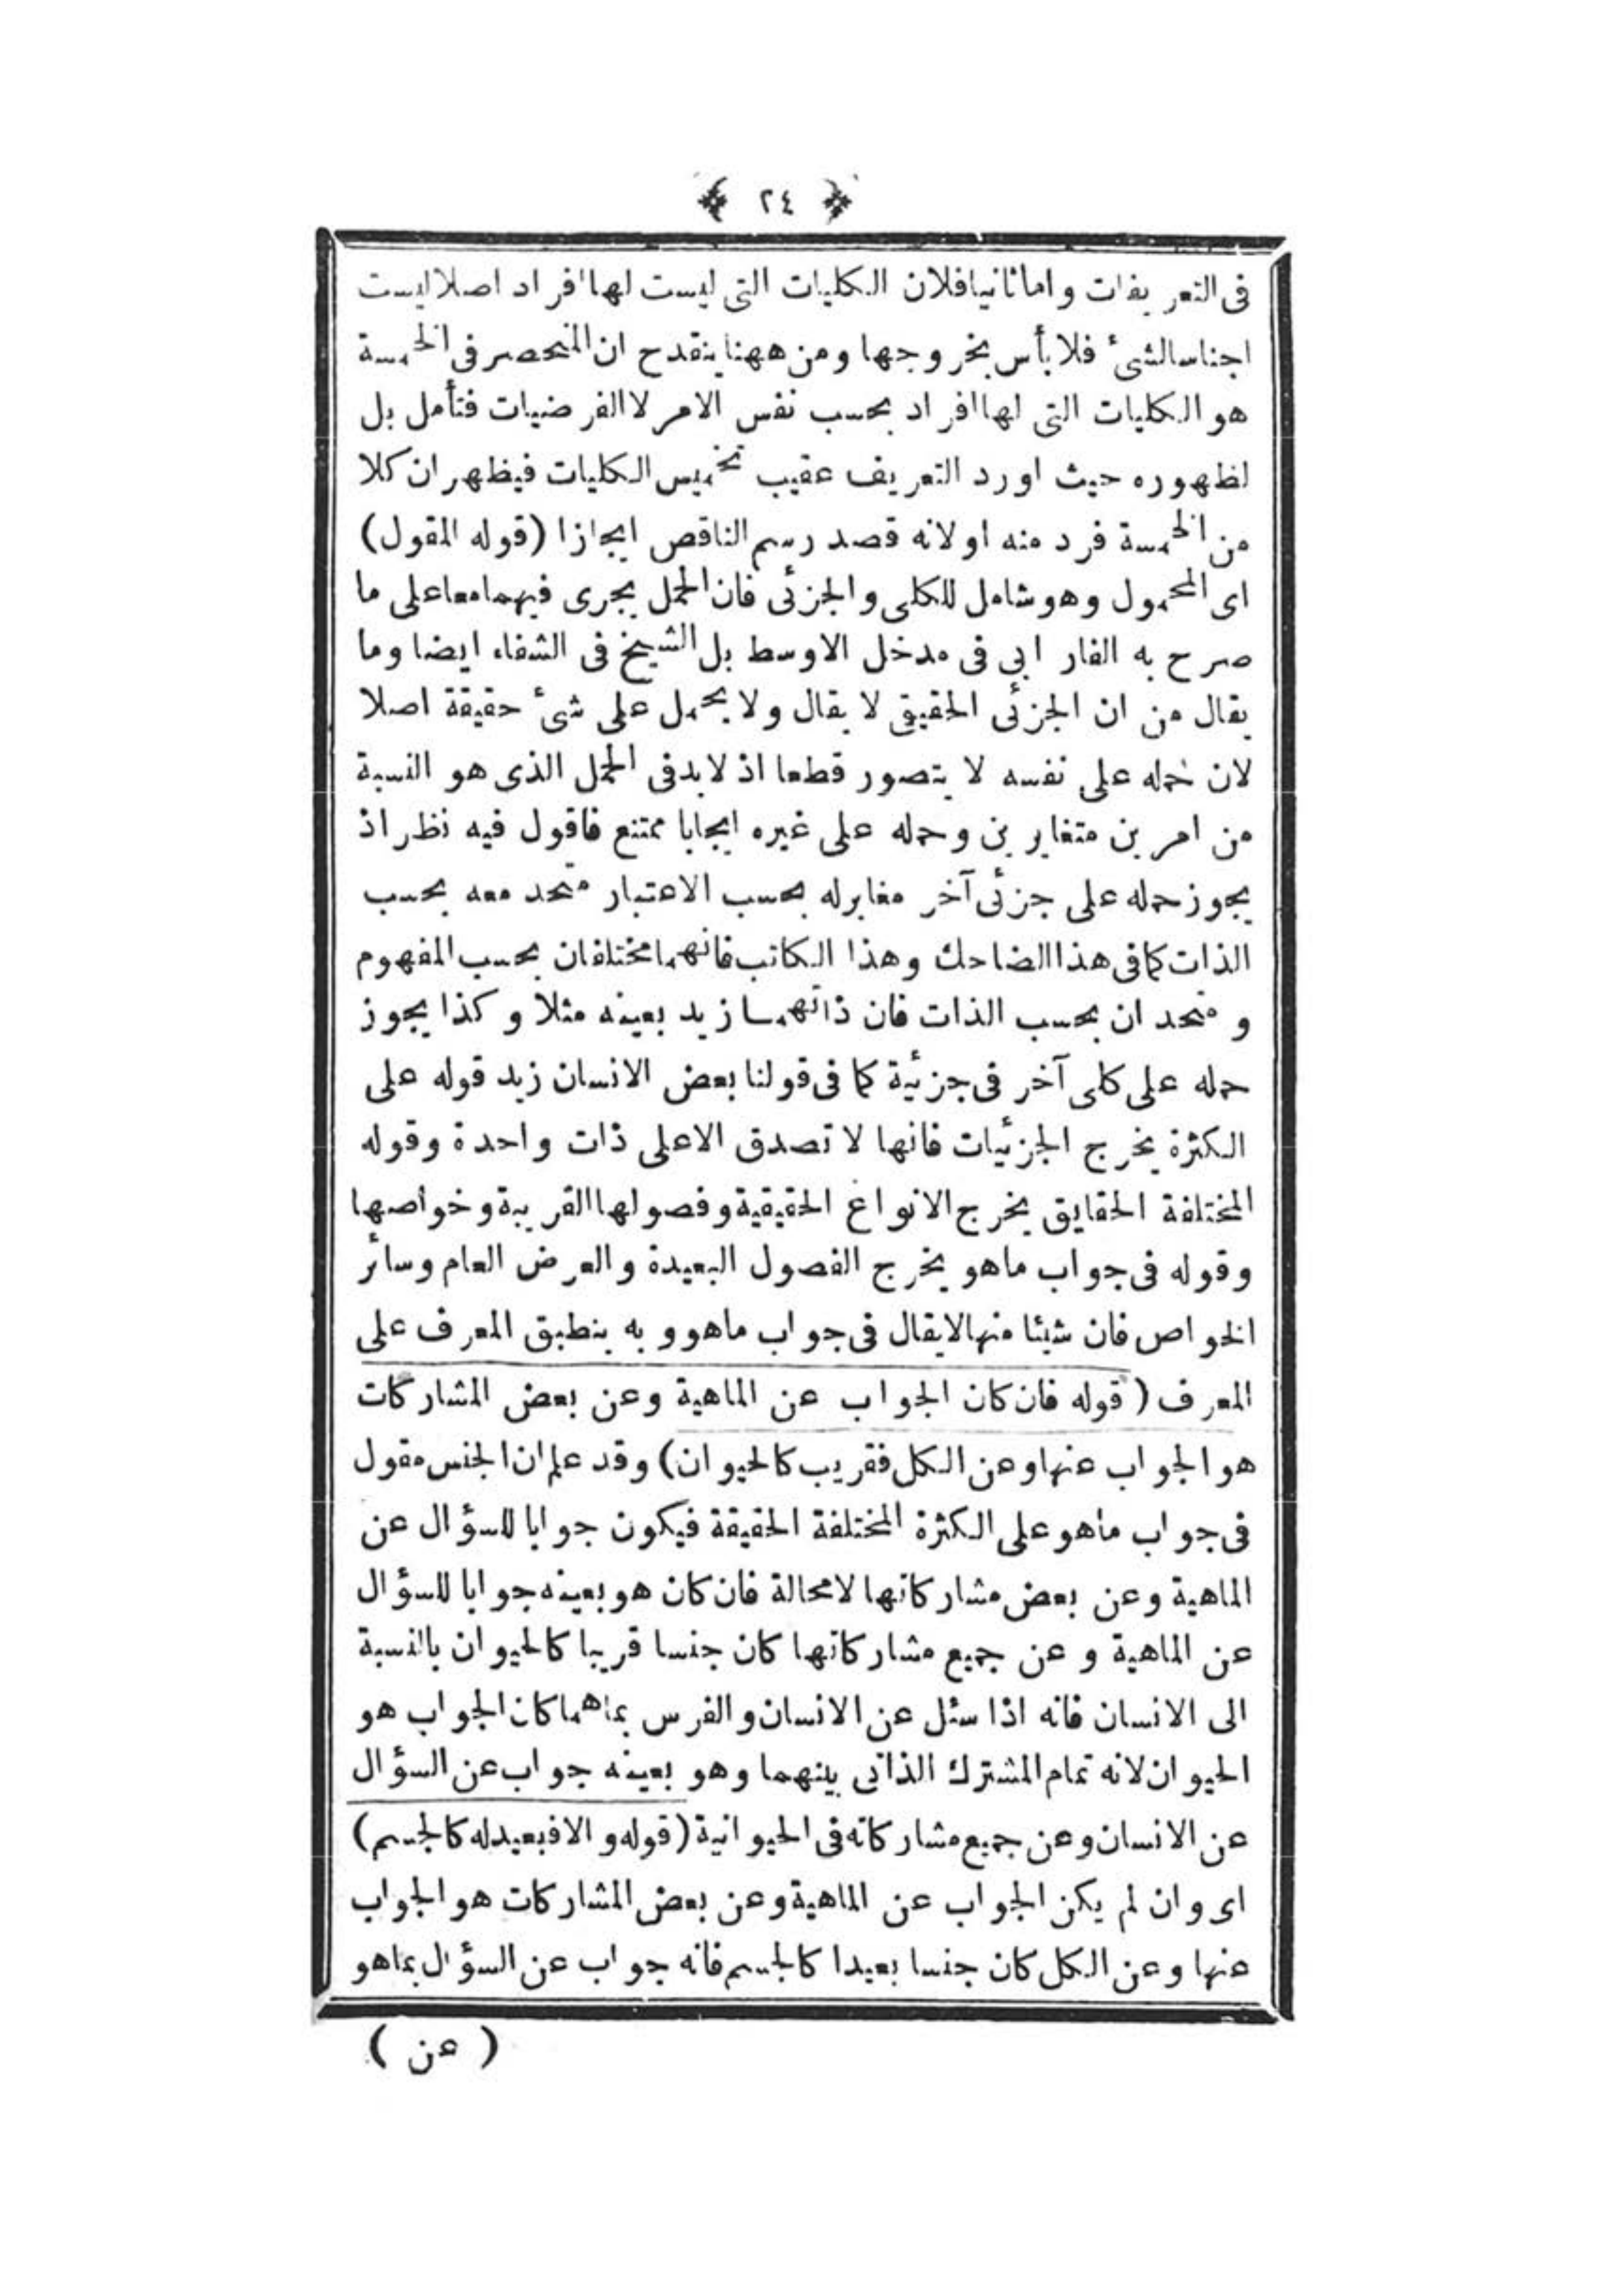 ﴿ ٢٤ ﴾
فى التعريفات واما ثانيا فلان الكليات التى ليست لها افراد اصلا ليست
اجناسا لشئ فلا بأس بخروجها ومن ههنا ينقدح ان المنحصر فى الخمسة
هو الكليات التى لها افراد بحسب نفس الامر لا الفرضيات فتأمل بل
لظهوره حيث اورد التعريف عقيب تخميس الكليات فيظهر ان كلا
من الخمسة فرد منه او لانه قصد رسم الناقص ايجازا (قوله المقول)
اى المحمول وهو شامل للكلى والجزئى فان الحمل يجرى فيهما معا على ما
صرح به الفارابى فى مدخل الاوسط بل الشيخ فى الشفاء ايضا وما
يقال من ان الجزئى الحقيقى لا يقال ولا يحمل على شئ حقيقة اصلا
لان حمله على نفسه لا يتصور قطعا اذ لابد فى الحمل الذى هو النسبة
من امرين متغايرين وحمله على غيره ايجابا ممتنع فاقول فيه نظر اذ
يجوز حمله على جزئى آخر مغاير له بحسب الاعتبار متحد معه بحسب
الذات كما فى هذا الضاحك وهذا الكاتب فانهما مختلفان بحسب المفهوم
ومتحدان بحسب الذات فان ذاتهما زيد بعينه مثلا وكذا يجوز
حمله على كلى آخر فى جزئية كما فى قولنا بعض الانسان زيد قوله على
الكثرة يخرج الجزئيات فانها لا تصدق الا على ذات واحدة وقوله
المختلفة الحقايق يخرج الانواع الحقيقية وفصولها القريبة وخواصها
وقوله فى جواب ماهو يخرج الفصول البعيدة والعرض العام وسائر
الخواص فان شيئا منها لا يقال فى جواب ماهو وبه ينطبق المعرف على
المعرف (قوله فان كان الجواب عن الماهية وعن بعض المشاركات
هو الجواب عنها وعن الكل فقريب كالحيوان) وقد علم ان الجنس مقول
فى جواب ماهو على الكثرة المختلفة الحقيقة فيكون جوابا للسؤال عن
الماهية وعن بعض مشاركاتها لا محالة فان كان هو بعينه جوابا للسؤال
عن الماهية وعن جميع مشاركاتها كان جنسا قريبا كالحيوان بالنسبة
الى الانسان فانه اذا سئل عن الانسان والفرس بماهما كان الجواب هو
الحيوان لانه تمام المشترك الذاتى بينهما وهو بعينه جواب عن السؤال
عن الانسان وعن جميع مشاركاته فى الحيوانية (قوله والا فبعيد له كالجسم)
اى وان لم يكن الجواب عن الماهية وعن بعض المشاركات هو الجواب
عنها وعن الكل كان جنسا بعيدا كالجسم فانه جواب عن السؤال بماهو
( عن )